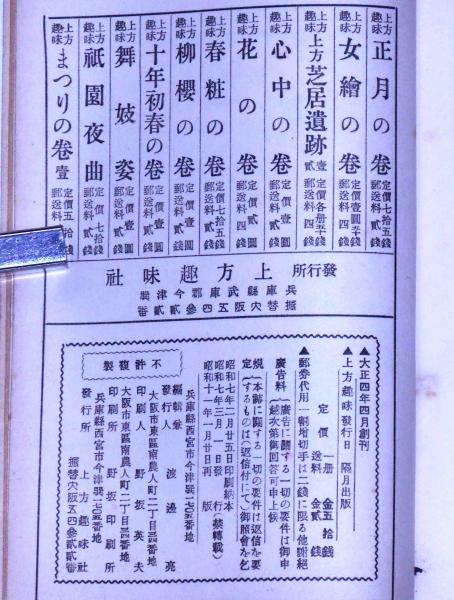 上方趣味 正月の卷 定價七拾五錢 郵送料貳錢
上方趣味 女繪の卷 定價壹圓五十錢 郵送料四錢
上方趣味 上方芝居遺跡 壹貳 定價各册五十錢 郵送料貳錢
上方趣味 心中の卷 定價壹圓 郵送料四錢
上方趣味 花の卷 定價貳圓 郵送料四錢
上方趣味 春粧の卷 定價七拾五錢 郵送料四錢
上方趣味 柳櫻の卷 定價壹圓 郵送料貳錢
上方趣味 十年初春の卷 定價壹圓 郵送料貳錢
上方趣味 舞妓姿 定價壹圓 郵送料貳錢
上方趣味 祇園夜曲 定價七拾錢 郵送料貳錢
上方趣味 まつりの卷 壹 定價五拾錢 郵送料貳錢
發行所 上方趣味社
兵庫縣武庫郡今津巽
振替大阪五四參貳貳番
▲大正四年四月創刊
▲上方趣味發行日 隔月出版
定價 一册 金五拾錢
送料 金貳錢
▲郵券代用一割增切手は二錢に限る他謝絕
廣告料(廣告に關する一切の要件は御申越次第御回答可申上候
規定(本誌に關する一切の要件は返信を要するものは(返信付にて)御照會を乞
昭和七年二月廿五日印刷納本
昭和七年三月一日發行(禁轉載)
昭和十一年一月廿日再版
不許複製
兵庫縣西宮市今津巽七五番地
編輯兼發行人 渡邊亮
大阪市東區南農人町二丁目四番地
印刷人 野坂英夫
大阪市東區南農人町二丁目四番地
印刷所 野坂印刷所
兵庫縣西宮市今津巽七五番地
發行所 上方趣味社
振替大阪五四參貳貳番